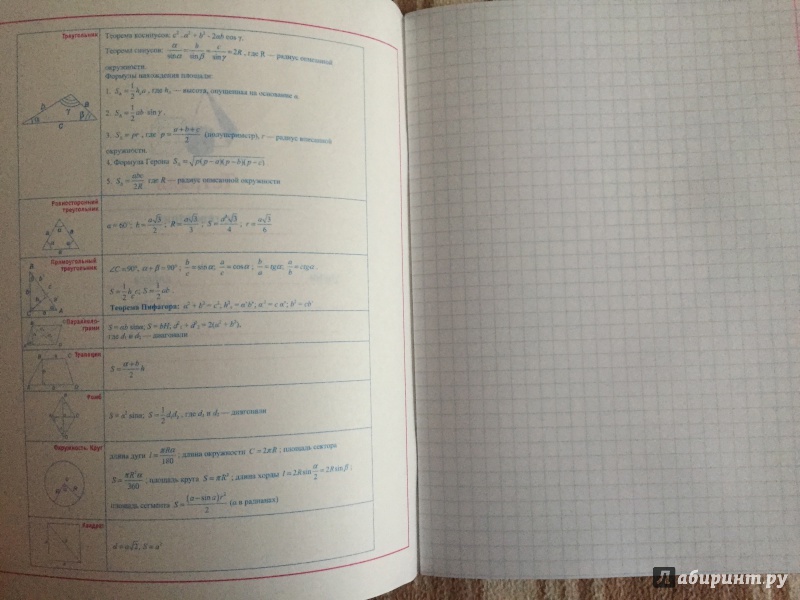 Треугольник
Теорема косинусов: c² = a² + b² - 2ab cos γ.
Теорема синусов: a/sin α = b/sin β = c/sin γ = 2R, где R — радиус описанной
окружности.
Формулы нахождения площади:
1. S = 1/2 hₐa, где hₐ — высота, опущенная на основание a.
2. S = 1/2 ab·sin γ.
3. S = pr, где p = (a+b+c)/2 (полупериметр), r — радиус вписанной
окружности.
4. Формула Герона S = √p(p−a)(p−b)(p−c)
5. S = abc/2R где R — радиус описанной окружности
Равносторонний
треугольник
α = 60°; h = a√3/2; R = a√3/3; S = a²√3/4, r = a√3/6
Прямоугольный
треугольник
∠C=90°, α+β=90°; b/c = sin α; a/c = cos α; b/a = tg α; a/b = ctg α
S = 1/2 h꜀c; S = 1/2 ab.
Теорема Пифагора: a² + b² = c²,
Параллело-
грамм
S = ab sin α; S = bH; d²₁ + d²₂ = 2(a² + b²),
где d₁ и d₂ — диагонали
Трапеция
S = (a+b)/2 h
Ромб
S = a² sin α; S = 1/2 d₁d₂, где d₁ и d₂ — диагонали
Окружность. Круг
длина дуги l = πRα/180; длина окружности C = 2πR; площадь сектора
S = πR²α/360; площадь круга S = πR²; длина хорды l = 2R sin α/2 = 2R sin β;
площадь сегмента S = (α−sin α)r²/2 (α в радианах)
Квадрат
d = a√2, S = a²
Лабиринт.ру